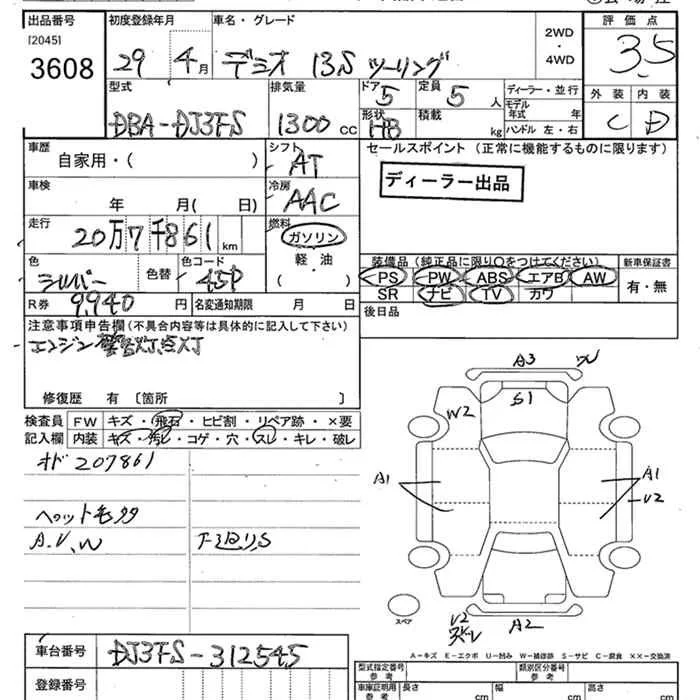 出品番号 初度登録年月 車名・グレード 2WD・4WD 評価点
[2045]
3608
29 4月 デミオ 13S ツーリング 3.5
型式 排気量 ドア 5 定員 5人 ディーラー・並行 外装 内装
DBA-DJ3FS 1300cc 形状 HB 積載 kg モデル年式 年 C D
ハンドル 左・右
車歴 シフト セールスポイント(正常に機能するものに限ります)
自家用・( ) AT
ディーラー出品
車検 冷房
年 月( 日) AAC
走行 燃料
20万7千861km ガソリン
軽・油
( )
色 色替 色コード
シルバー 45P
装備品(純正品に限り○をつけてください) 新車保証書
PS PW ABS エアB AW 有・無
SR ナビ TV カワ
R券 9,940円 名変通知期限 月 日
後日品
注意事項申告欄(不具合内容等は具体的に記入して下さい)
エンジン
修復歴 有 〔箇所
検査員記入欄 FW キズ・飛石・ヒビ割・リペア跡・×要
内装 キズ・汚レ・コゲ・穴・スレ・キレ・破レ
オド 207861
A.V、W
下廻りS
A3
S1
W2
A1
A1
U2
A2
スペア
A-キズ E-エクボ U-凹み W-補修跡 S-サビ C-腐食 XX-交換済
車台番号 DJ3FS-312545
登録番号
型式指定番号 参考 類別区分番号 参考
車庫証明用 参考 長さ cm 幅 cm 高さ cm